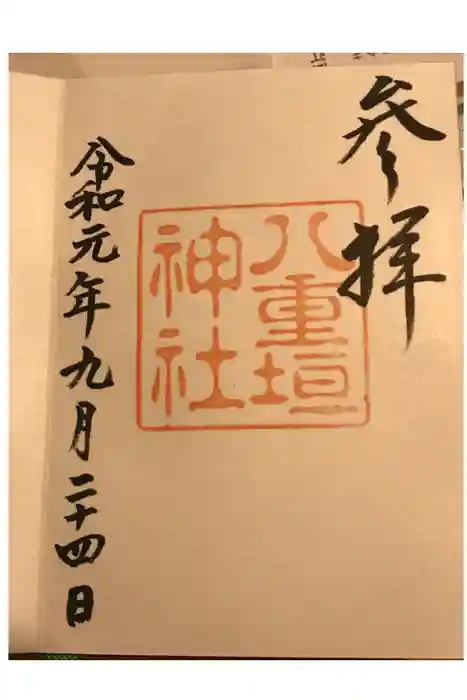 参拝
八重垣
神社
令和元年九月二十四日